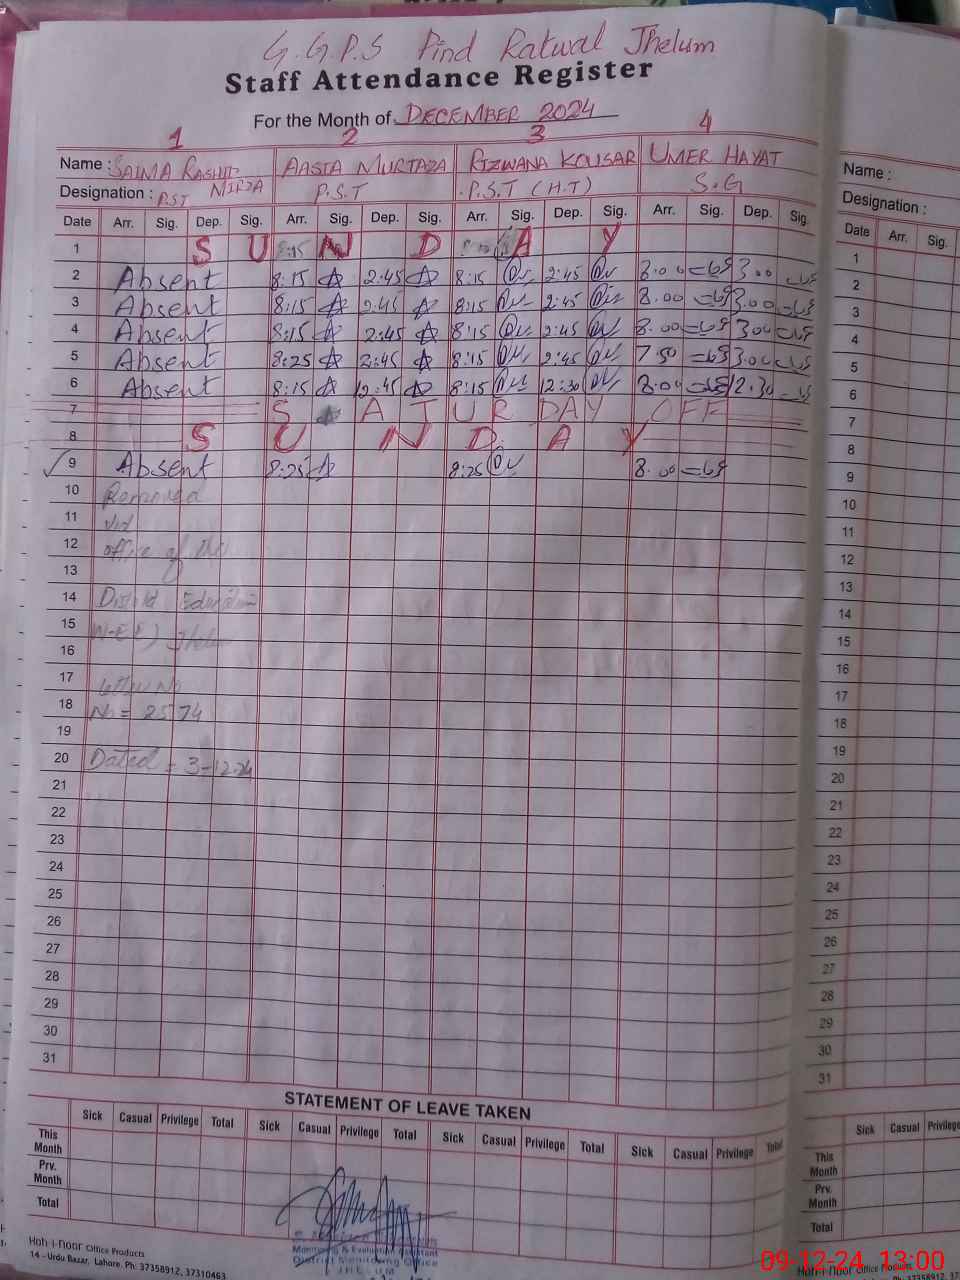 G.G.P.S Pind Ratwal Jhelum
Staff Attendance Register
For the Month of DECEMBER 2024
1 2 3 4
Name : SAIMA RASHID MIRZA AASIA MURTAZA RIZWANA KOUSAR UMER HAYAT
Designation : P.S.T P.S.T P.S.T (H.T) S.G
Date Arr. Sig. Dep. Sig. Arr. Sig. Dep. Sig. Arr. Sig. Dep. Sig. Arr. Sig. Dep. Sig.
1 S U N D A Y
2 Absent 8:15 2:45 8:15 2:45 8.00 3.00
3 Absent 8:15 2:45 8:15 2:45 8.00 3.00
4 Absent 8:15 2:45 8:15 2:45 8.00 3.00
5 Absent 8:25 2:45 8:15 2:45 7.50 3.00
6 Absent 8:15 12:45 8:15 12:30 8.00 12.30
7 S A T U R DAY OFF
8 S U N D A Y
9 Absent 8:25 8:25 8.00
10 Removed
11 vid
12 office of the
13
14 District Education
15
16
17 letter No
18 No = 2574
19
20 Dated = 3-12-24
21
22
23
24
25
26
27
28
29
30
31
STATEMENT OF LEAVE TAKEN
Sick Casual Privilege Total Sick Casual Privilege Total Sick Casual Privilege Total Sick Casual Privilege Total
This Month
Prv. Month
Total
Monitoring & Evaluation Assistant
District Monitoring Office
JHELUM
Hoh-i-noor Office Products
14 - Urdu Bazar, Lahore. Ph: 37358912, 37310463
Name :
Designation :
Date Arr. Sig.
1
2
3
4
5
6
7
8
9
10
11
12
13
14
15
16
17
18
19
20
21
22
23
24
25
26
27
28
29
30
31
Sick Casual Privilege
This Month
Prv. Month
Total
Hoh-i-noor Office Products
09-12-24 13:00